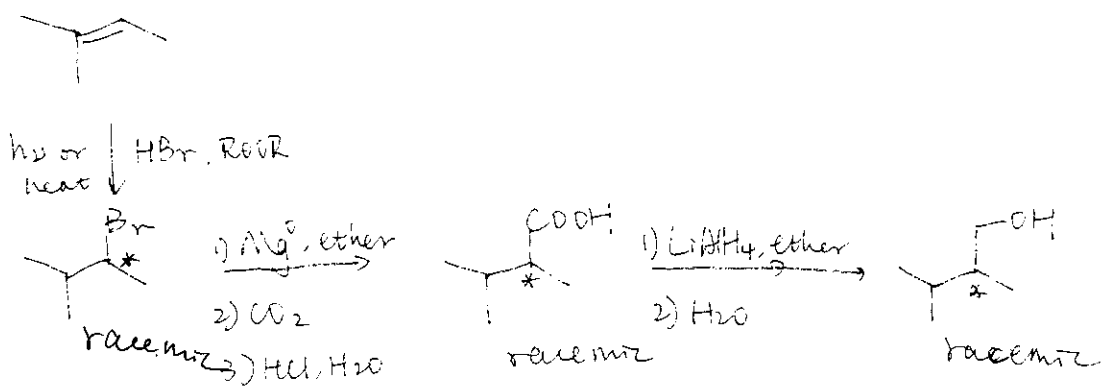 hν or heat
HBr, ROOR
Br
*
racemic
1) Mg°, ether
2) CO2
3) HCl, H2O
COOH
*
racemic
1) LiAlH4, ether
2) H2O
OH
*
racemic